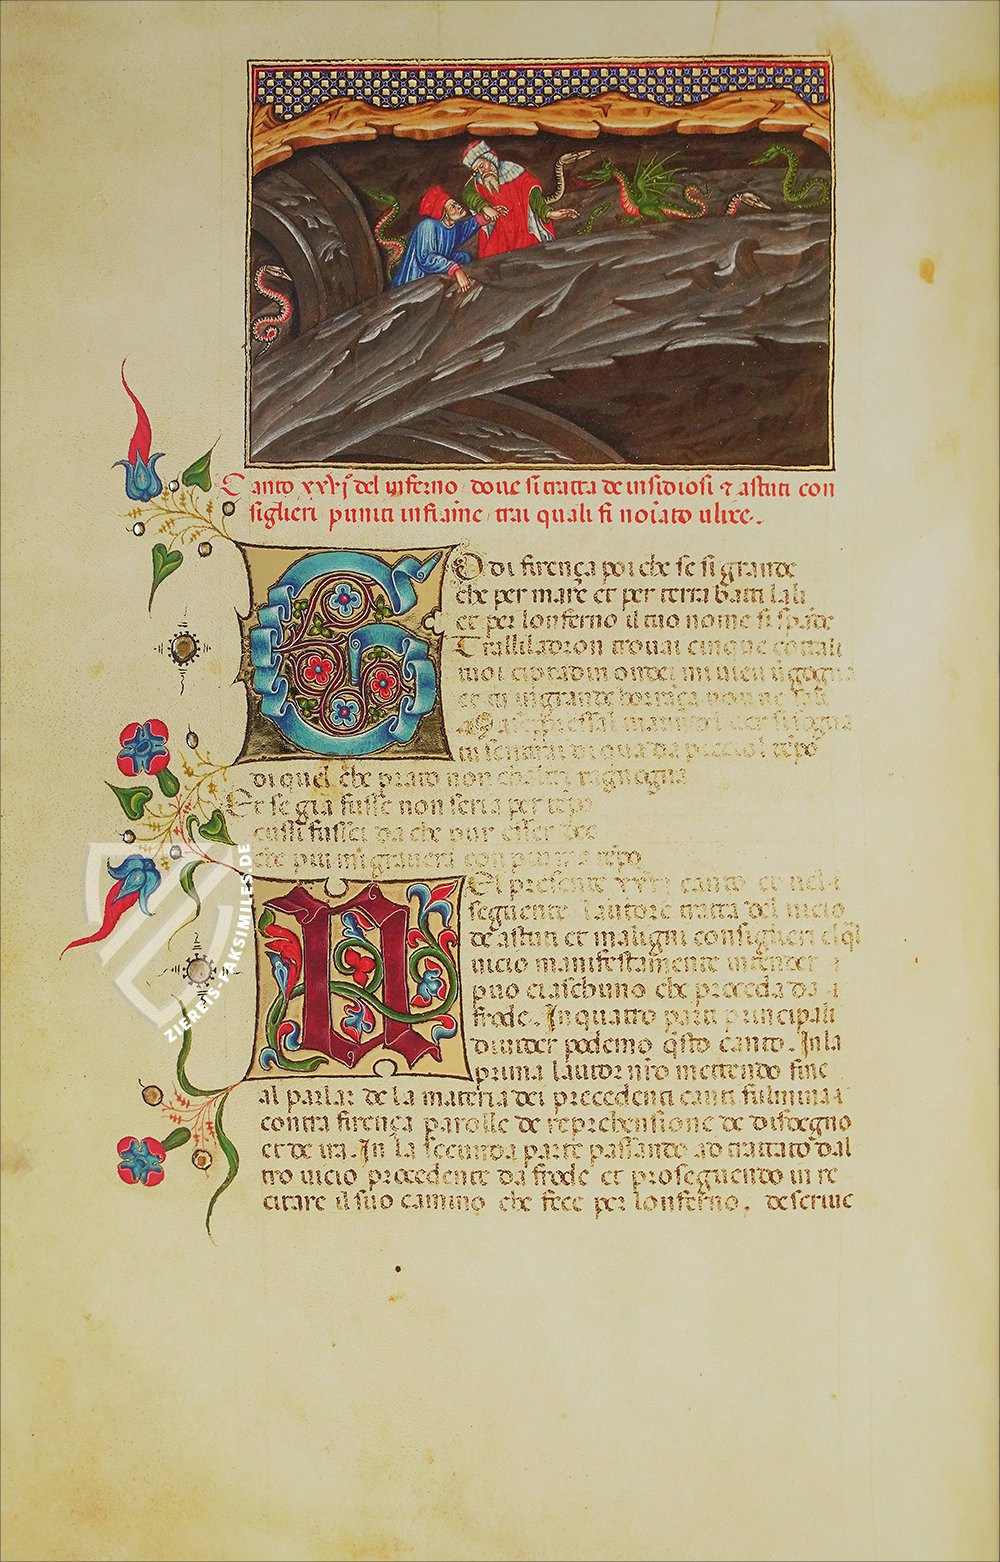 Canto xxvjº del inferno doue si tratta de insidiosi et astuti con
siglieri puniti in fiame trai quali fi noiato ulixe.
Godi firença poi che se si grande
che per mare et per terra batti lali
et per lonferno il tuo nome si spāde
Tralliladron trouai cinque cottali
tuoi
et tu in grande non ne
di qua da picciol tēpo
di quel che prato non
Et se gia fusse non seria per tēpo
cussi fussei da che pur esser dee
che piu mi grauera con piu
Nel presente xxvj canto et nel
seguente lautore tratta del uicio
de astuti et maligni consiglieri el q̄l
uicio manifestamente intender
puo ciaschuno che proceda da
frode. In quatro parti principali
diuider podemo q̄sto canto. In la
prima lautor nr̄o mettendo fine
al parlar de la materia dei precedenti canti fulmina
contra firença parolle de reprehensione de disdegno
et de ira. In la secunda parte passando ad tractato dal
tro uicio procedente da frode et proseguendo in re
citare il suo camino che fece per lonferno, descriue
ZIEREIS-FAKSIMILES.DE